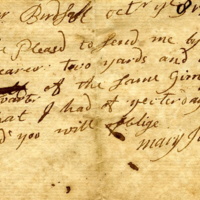 Birdsell octr ye 8
Please to send me by
bearer two yards and
of the same Gim
that I had yesterday
you will oblige
mary J